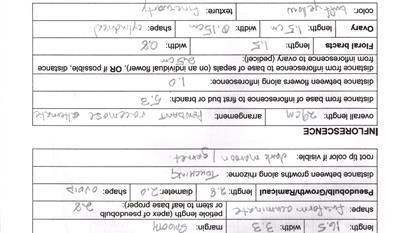 length: 16.5 width: 3.3 margin: smooth
shape: acuminate petiole length (apex of pseudobulb
or stem to leaf base proper): 2.8
Pseudobulb/Growth/Ramicaul length: 2.8 diameter: 2.0 shape: ovoid
distance between growths along rhizome: Touching
root tip color if visible: dark maroon / garnet
INFLORESCENCE
overall length: 29cm arrangement: pendant racemose alternate
distance from base of inflorescence to first bud or branch: 5.3
distance between flowers along inflorescence: 1.0
distance from inflorescence to base of sepals (on an individual flower), OR if possible, distance
from inflorescence to base (pedicel): 2.5cm
Floral bracts length: 1.5 width: 0.8
Ovary length: 1.5cm width: 0.15cm shape: cylindrical
color: yellow texture: